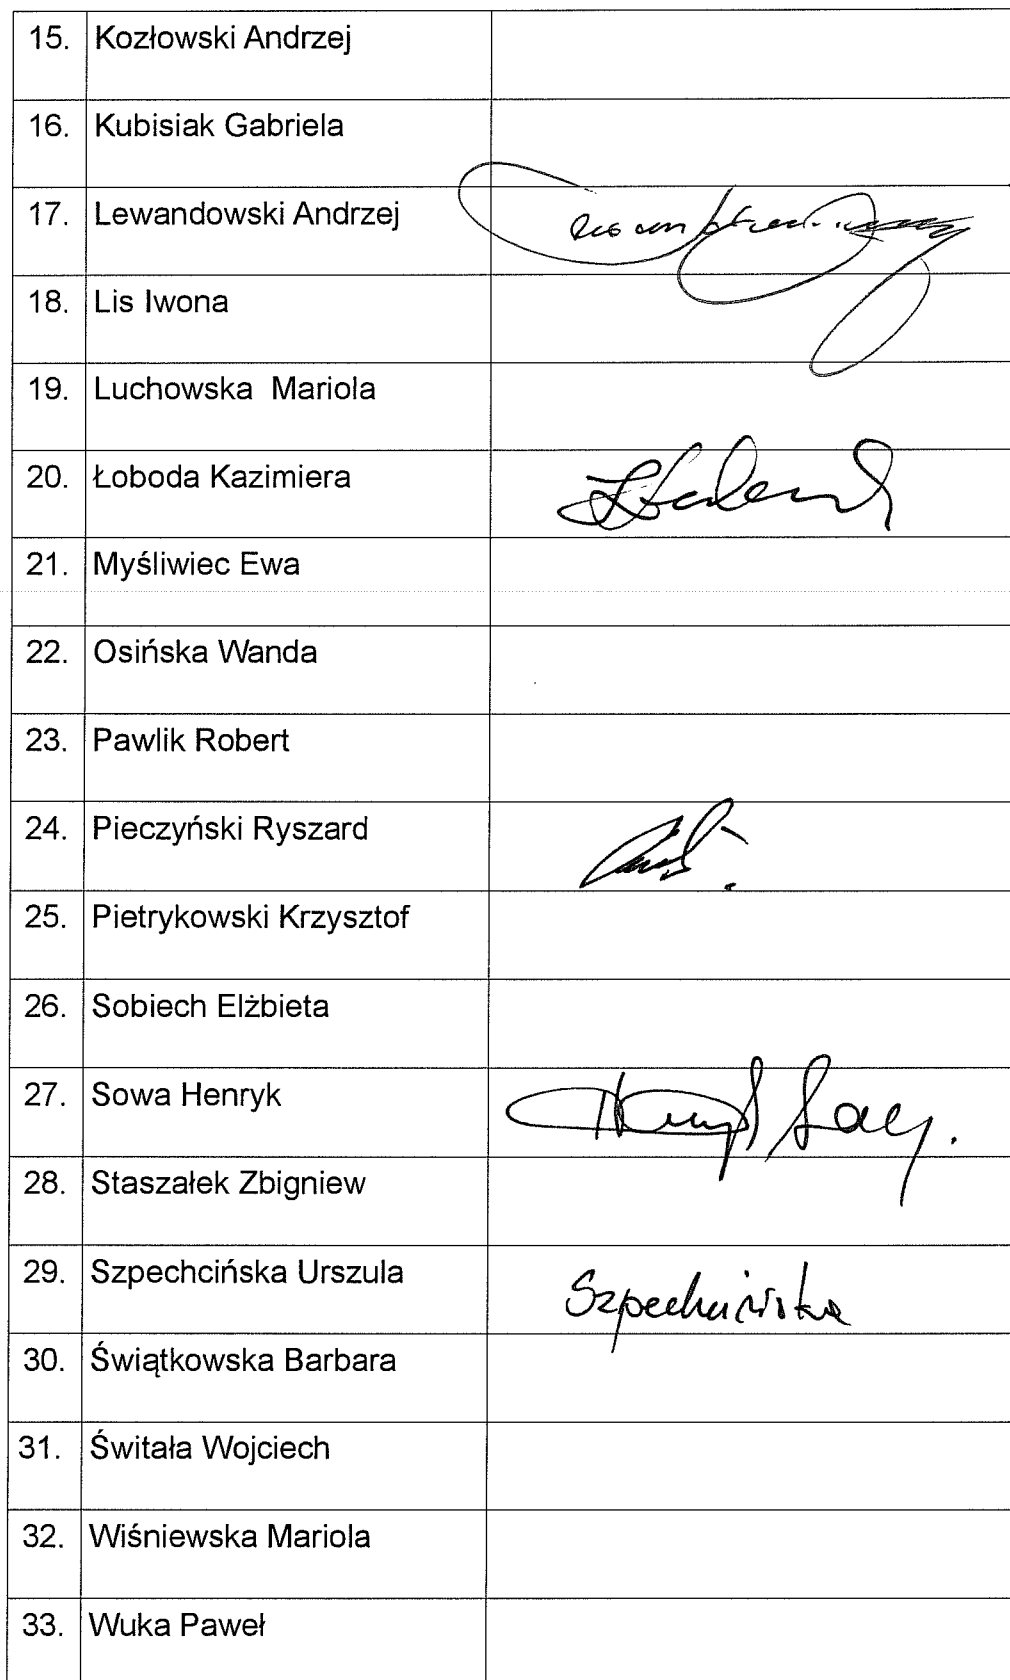 15. Kozłowski Andrzej
16. Kubisiak Gabriela
17. Lewandowski Andrzej
18. Lis Iwona
19. Luchowska Mariola
20. Łoboda Kazimiera
21. Myśliwiec Ewa
22. Osińska Wanda
23. Pawlik Robert
24. Pieczyński Ryszard
25. Pietrykowski Krzysztof
26. Sobiech Elżbieta
27. Sowa Henryk
28. Staszałek Zbigniew
29. Szpechcińska Urszula Szpechcińska
30. Świątkowska Barbara
31. Świtała Wojciech
32. Wiśniewska Mariola
33. Wuka Paweł